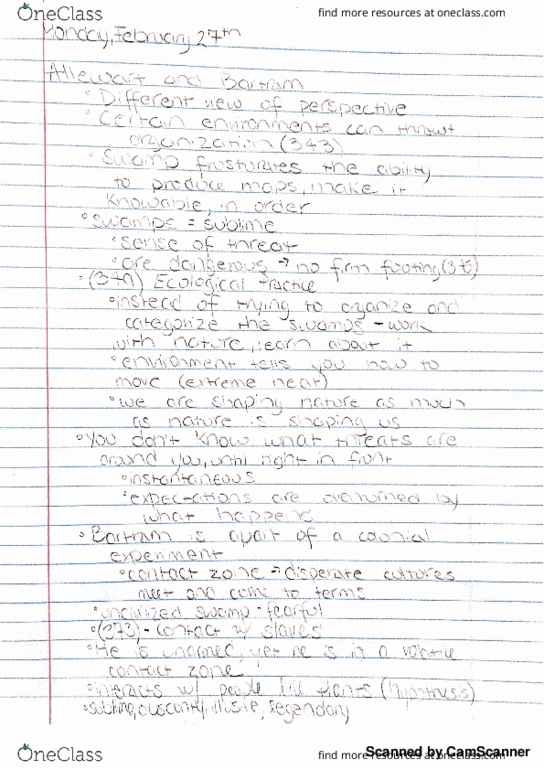 OneClass
find more resources at oneclass.com
Monday, February 27th
Allewart and Bartram
• Different view of perspective
• Certain environments can thwart
organization (343)
• Swamp frusturates the ability
to produce maps, make it
knowable, in order
• swamps = sublime
• sense of threat
• are dangerous → no firm footing (3
• (34 Ecological Practice
• instead of trying to organize and
categorize the swamps - work
with nature, learn about it
• environment tells you how to
move (extreme near)
• we are shaping nature as much
as nature is shaping us
• you don't know what threats are
around you, until right in front
• instantaneous
• expectations are overturned by
what happens
• Bartram is apart of a colonial
experiment
• contact zone → disperate cultures
meet and come to terms
• uncivilized swamp - fearful
• (373) - contact w/ slaves
• He is unarmed, yet he is in a volatile
contact zone
• interacts w/ people like plants
obscurity, legendary
OneClass
find more resources at oneclass.com
Scanned by CamScanner